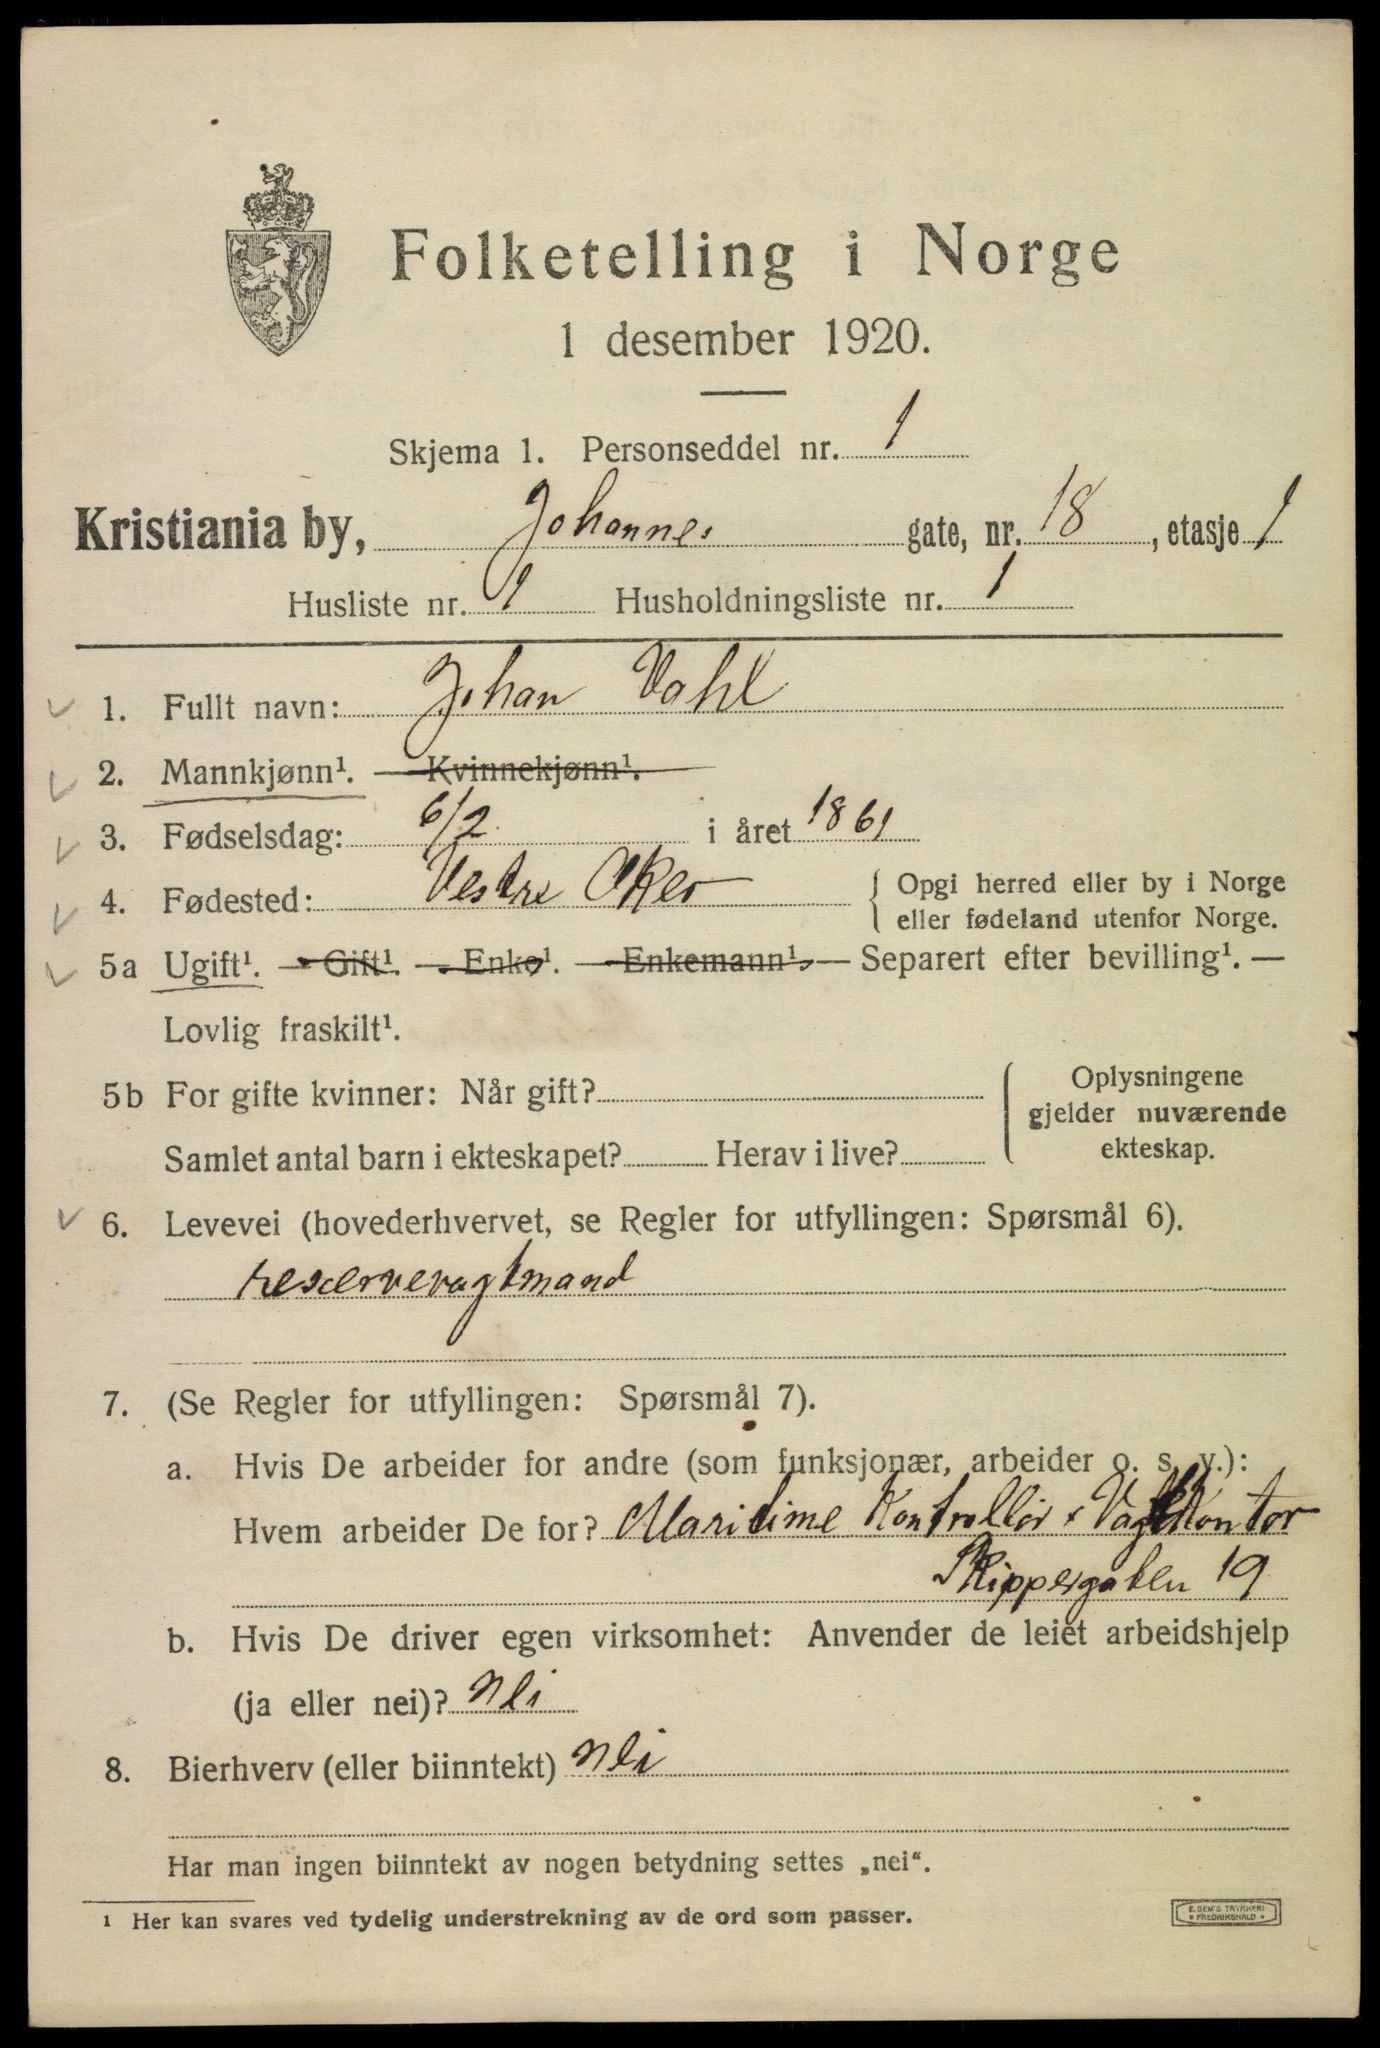 Folketelling i Norge
1 desember 1920.
Skjema 1. Personseddel nr. 1
Kristiania by, Johannes gate, nr. 18, etasje 1
Husliste nr. 1 Husholdningsliste nr. 1
1. Fullt navn: Johan Vahl
2. Mannkjønn¹. — Kvinnekjønn¹.
3. Fødselsdag: 6/2 i året 1861
4. Fødested: Vestre Aker { Opgi herred eller by i Norge
eller fødeland utenfor Norge.
5a Ugift¹. — Gift¹. — Enke¹. — Enkemann¹. — Separert efter bevilling¹. —
Lovlig fraskilt¹.
5b For gifte kvinner: Når gift?
Samlet antal barn i ekteskapet? Herav i live?
Oplysningene
gjelder nuværende
ekteskap.
6. Levevei (hovederhvervet, se Regler for utfyllingen: Spørsmål 6).
reservevagtmand
7. (Se Regler for utfyllingen: Spørsmål 7).
a. Hvis De arbeider for andre (som funksjonær, arbeider o. s. v.):
Hvem arbeider De for? Maritime Kontrollør & Vagtkontor
Skippergaten 19
b. Hvis De driver egen virksomhet: Anvender de leiet arbeidshjelp
(ja eller nei)? Nei
8. Bierhverv (eller biinntekt) Nei
Har man ingen biinntekt av nogen betydning settes „nei“.
1 Her kan svares ved tydelig understrekning av de ord som passer.
E. SEM'S TRYKKERI
• FREDRIKSHALD •